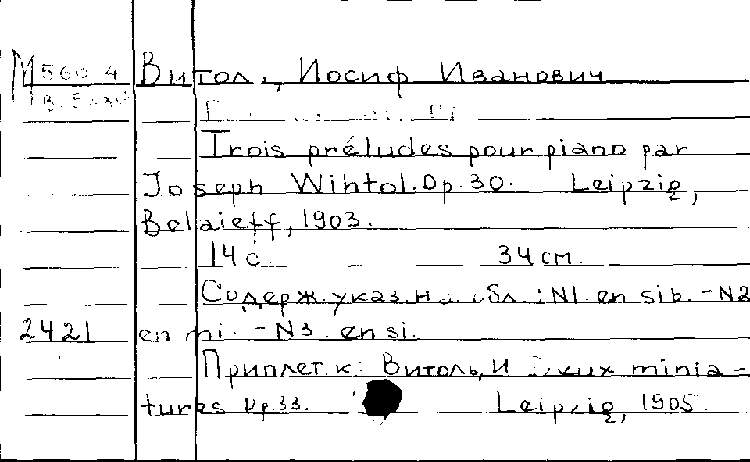 М 560 4 Витол, Иосиф Иванович
Trois préludes pour piano par
Joseph Wihtol. Op. 30. Leipzig,
Belaieff, 1903.
14 с. 34 см.
Содерж. указ. на обл.: N1 en sib. - N2
2421 en mi. - N3 en si.
Приплет. к: Витоль, И Deux minia-
tures Op. 33. Leipzig, 1905.